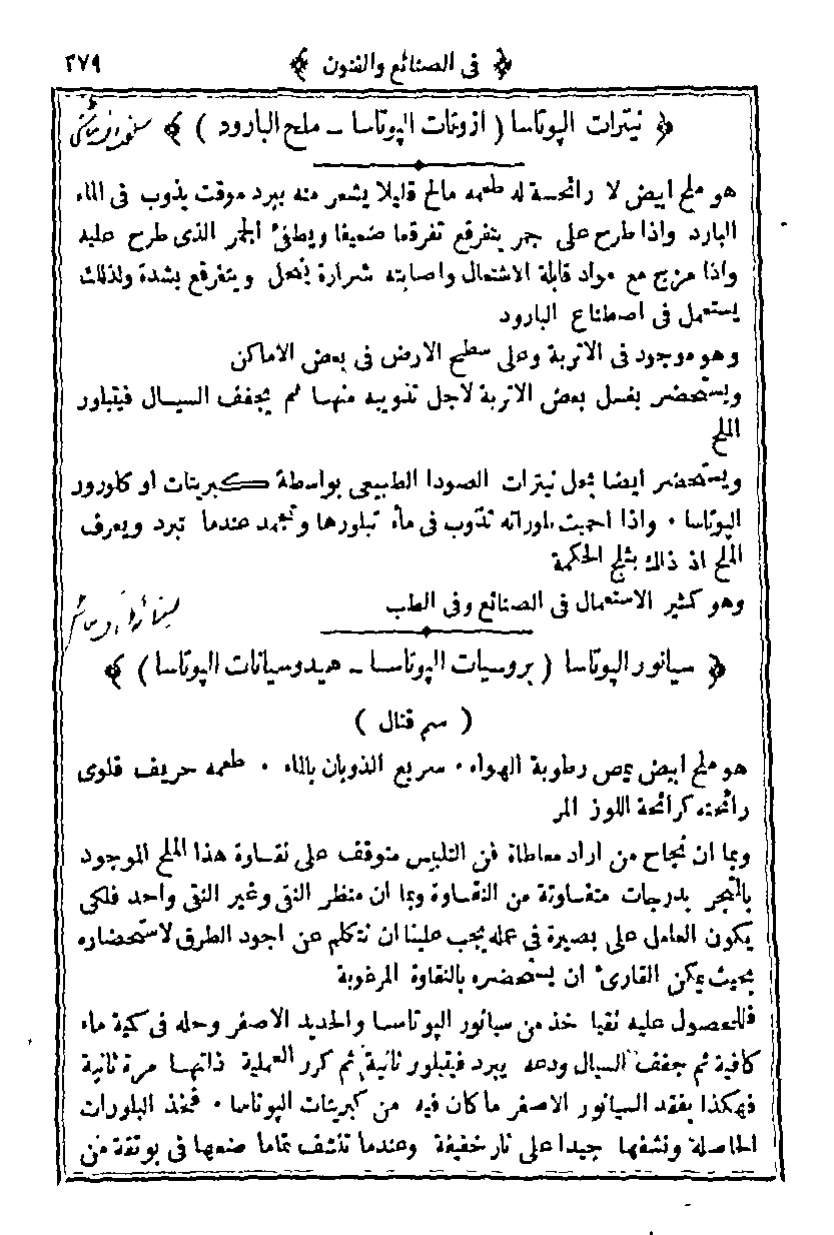 ﴿ فى الصنائع والفنون ﴾ ٣٧٩
﴿ نيترات الپوتاسا ( ازوتات الپوتاسا ـ ملح البارود ) ﴾
هو ملح ابيض لا رائحة له طعمه مالح قليلا يشعر منه ببرد موقت يذوب فى الماء
البارد واذا طرح على جمر يتفرقع تفرقعا ضعيفا ويطفئ الجمر الذى طرح عليه
واذا مزج مع مواد قابلة الاشتعال واصابته شرارة يشعل ويتفرقع بشدة ولذلك
يستعمل فى اصطناع البارود
وهو موجود فى الاتربة وعلى سطح الارض فى بعض الاماكن
ويستحضر بغسل بعض الاتربة لاجل تذويبه منها ثم يجفف السيال فيتبلور
الملح
ويستحضر ايضا بحل نيترات الصودا الطبيعى بواسطة كبريتات او كلورور
الپوتاسا ٠ واذا احميت بلوراته تذوب فى ماء تبلورها وتجمد عندما تبرد ويعرف
الملح اذ ذاك بثلج الحكمة
وهو كثير الاستعمال فى الصنائع وفى الطب
﴿ سيانور الپوتاسا ( بروسيات الپوتاسا ـ هيدوسيانات الپوتاسا ) ﴾
( سم قتال )
هو ملح ابيض يمص رطوبة الهواء ٠ سريع الذوبان بالماء ٠ طعمه حريف قلوى
رائحته كرائحة اللوز المر
وبما ان نجاح من اراد معاطاة فن التلبيس متوقف على نقاوة هذا الملح الموجود
بالمتجر بدرجات متفاوتة من النقاوة وبما ان منظر النقى وغير النقى واحد فلكى
يكون العامل على بصيرة فى عمله يجب علينا ان نتكلم عن اجود الطرق لاستحضاره
بحيث يمكن القارئ ان يستحضره بالنقاوة المرغوبة
فللحصول عليه نقيا خذ من سيانور الپوتاسا والحديد الاصفر وحله فى كمية ماء
كافية ثم جفف السيال ودعه يبرد فيتبلور ثانية ثم كرر العملية ذاتها مرة ثانية
فهكذا يفقد السيانور الاصفر ما كان فيه من كبريتات الپوتاسا ٠ فخذ البلورات
الحاصلة ونشفها جيدا على نار خفيفة وعندما تنشف تماما ضعها فى بوتقة من